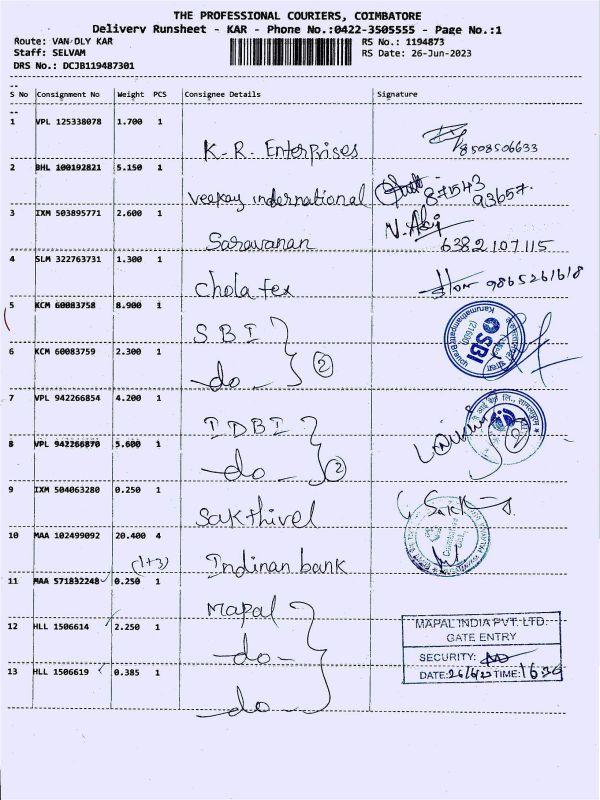 THE PROFESSIONAL COURIERS, COIMBATORE
Delivery Runsheet - KAR - Phone No.:0422-3505555 - Page No.:1
Route: VAN OLY KAR
RS No.: 1194873
Staff: SELVAM
RS Date: 26-Jun-2023
DRS No.: DCJB119487301
S No Consignment No Weight PCS Consignee Details Signature
1 VPL 125338078 1.700 1
K. R. Enterprises 8508506633
2 BHL 100192821 5.150 1
Veekay international 87543
93657
3 IXM 503895771 2.600 1
Saravanan 6382107115
4 SLM 322763731 1.300 1
Chola tex 9865261618
5 KCM 60083758 8.900 1
SBI
Karumathampatti Branch
(21600)
SBI
6 KCM 60083759 2.300 1
do (2)
7 VPL 942266854 4.200 1
IDBI
8 VPL 942266870 5.600 1
do (2)
9 IXM 504063280 0.250 1
Sakthivel
10 MAA 102499092 20.400 4
(1+3) Indinan bank
11 MAA 571832248 0.250 1
Mapal
12 HLL 1506614 2.250 1
do
13 HLL 1506619 0.385 1
do
MAPAL INDIA PVT. LTD.
GATE ENTRY
SECURITY:
DATE: 26/6/23 TIME: 16:30